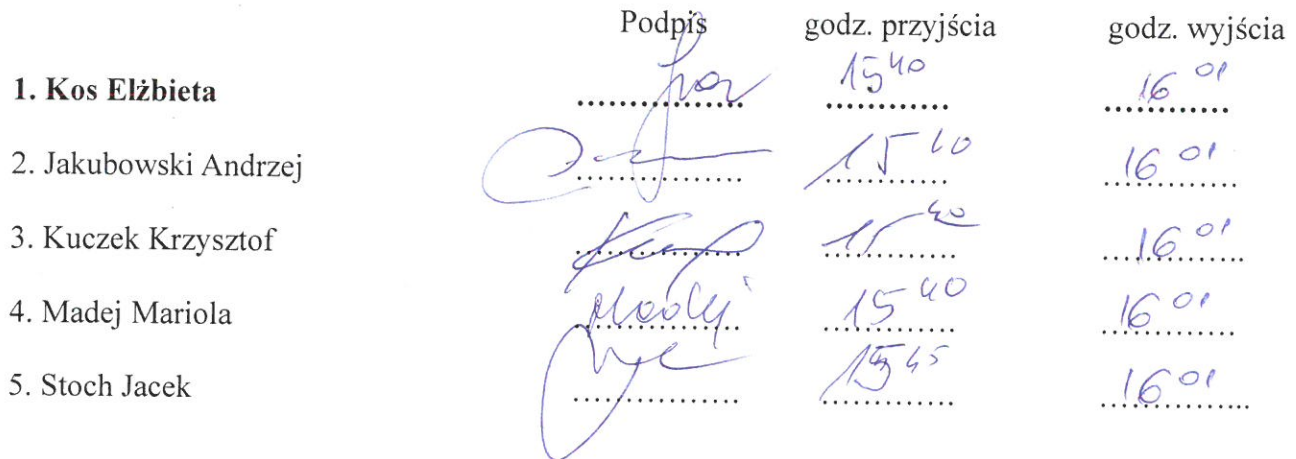 Podpis godz. przyjścia godz. wyjścia
1. Kos Elżbieta 15 40 16 01
2. Jakubowski Andrzej 15 40 16 01
3. Kuczek Krzysztof 15 40 16 01
4. Madej Mariola Madej 15 40 16 01
5. Stoch Jacek 15 45 16 01